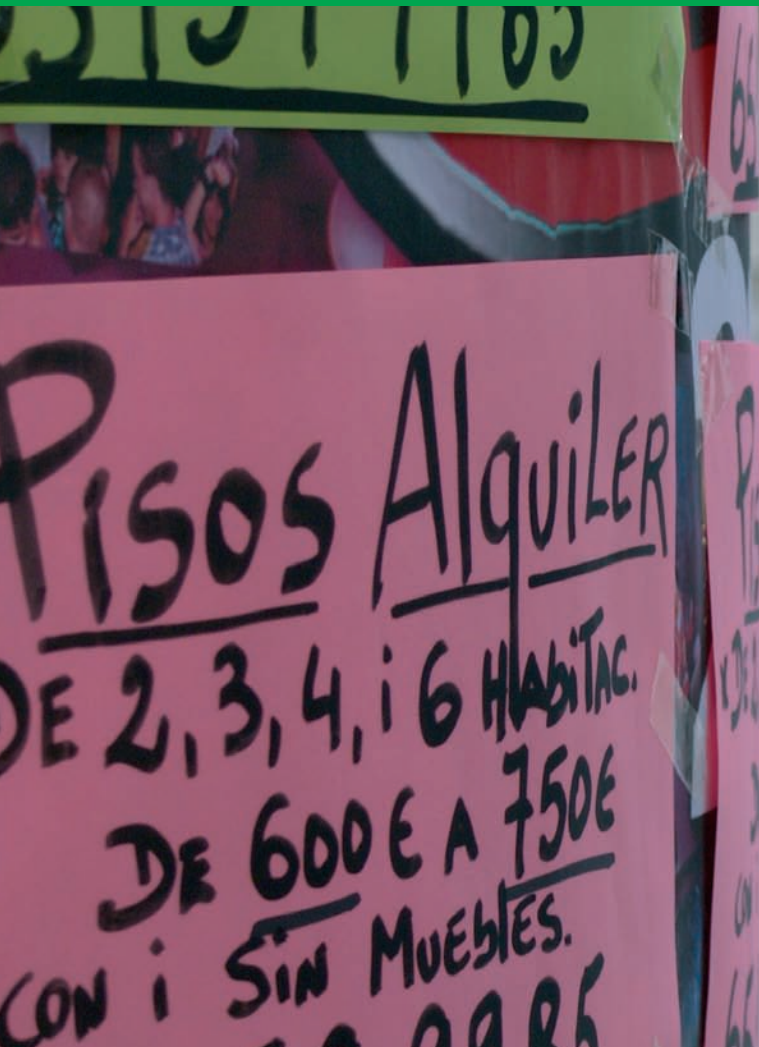 Pisos AlquiLER
DE 2, 3, 4, i 6 HABiTAC.
DE 600€ A 750€
CON i SiN MUEblES.